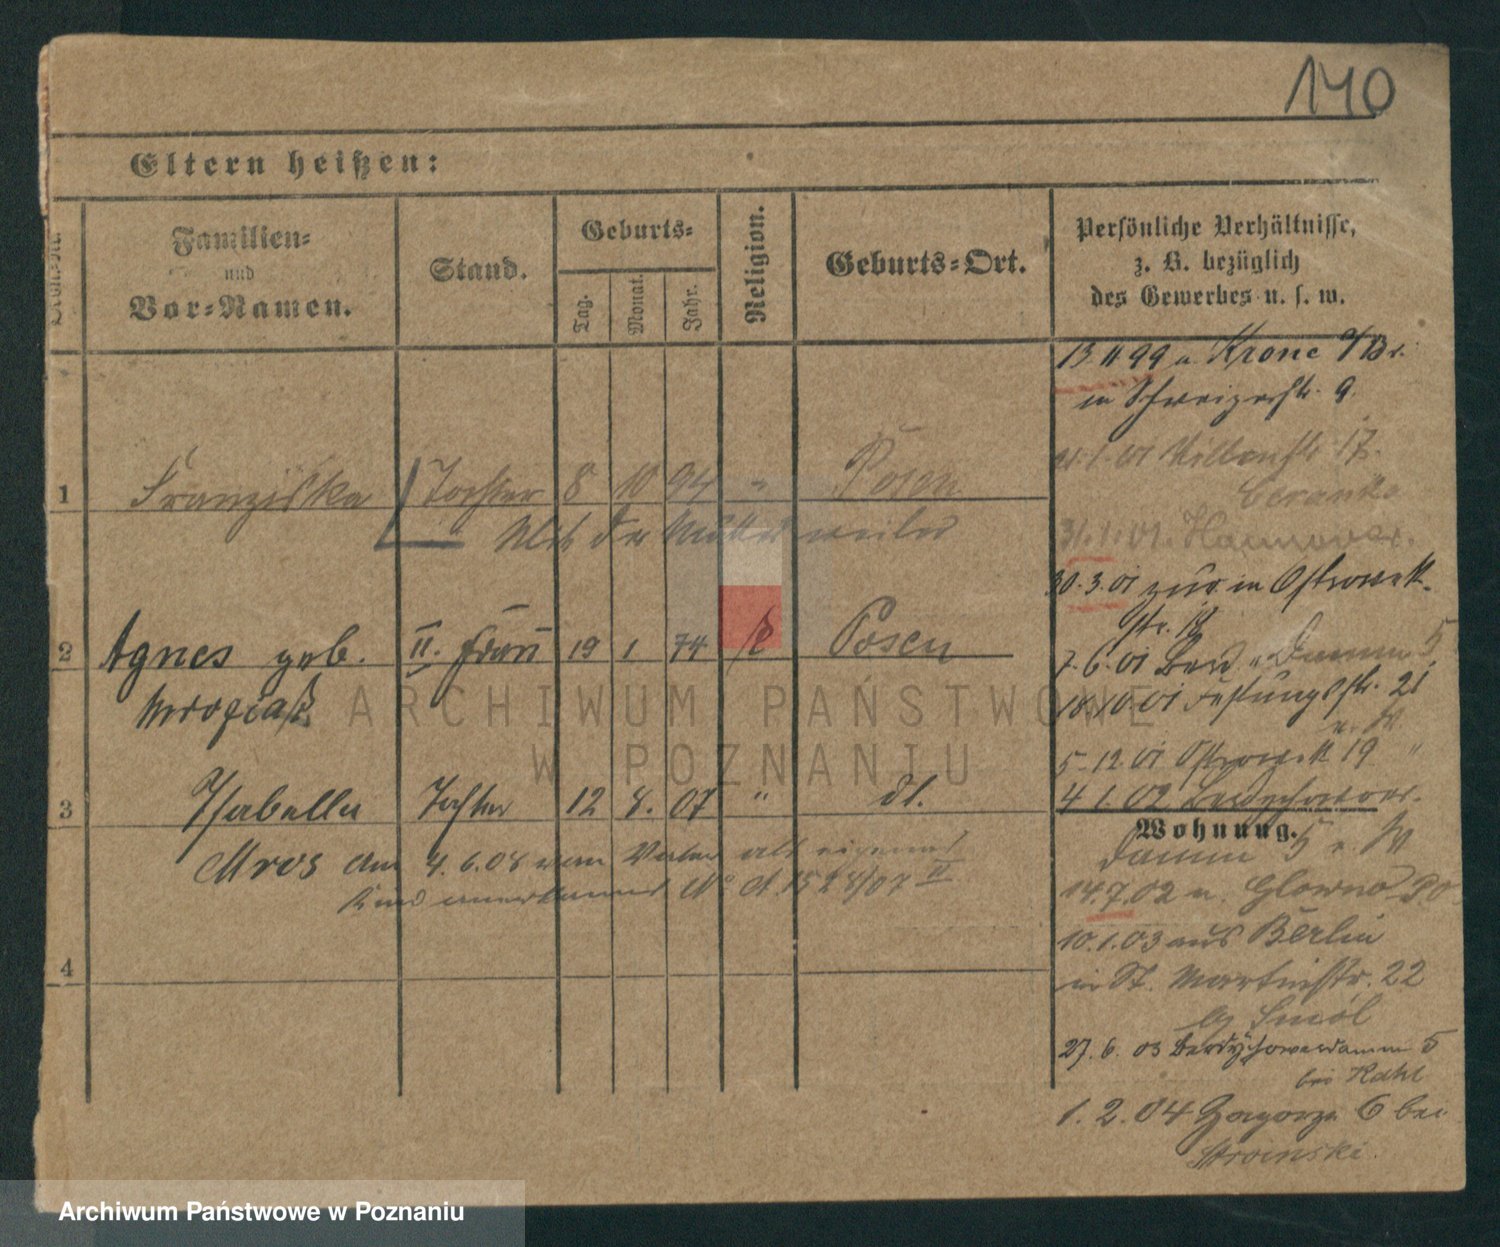 140
Eltern heißen:
Familien=
und
Vor=Namen.
Stand.
Geburts=
Tag.
Monat.
Jahr.
Religion.
Geburts=Ort.
Persönliche Verhältnisse,
z. B. bezüglich
des Gewerbes u. s. w.
13. 11 99 n. Krone a/Br.
in Schweizerstr. 9.
1 Franziska Tochter 8 10 94 " Posen
1. 01 17.
31. 1. 01. Hannover.
Mit der Mutter
30. 3. 01 zur. in Ostrowek
str. 18
2 Agnes geb. II. Frau 19 1 74 k Posen
7. 6. 01 Damm 5
18. 10 01 Festungsstr. 21
n. W
5. 12 01 Ostrowek 19 "
3 Isabella Tochter 12 8. 07 " dt.
4 1. 02
Wohnung.
Damm 5 n. W
Mros am 4. 6. 08 vom Vater als eigenes
Kind anerkannt No A 1528/07 II
14. 7. 02 n. Glowno
10. 1. 03 aus Berlin
in St. Martinstr. 22
4
27. 6. 03 Berdychowerdamm 5
bei Kahl
1. 2. 04 Zagorze 6 bei
Stroinski.
ARCHIWUM PAŃSTWOWE
W POZNANIU
Archiwum Państwowe w Poznaniu